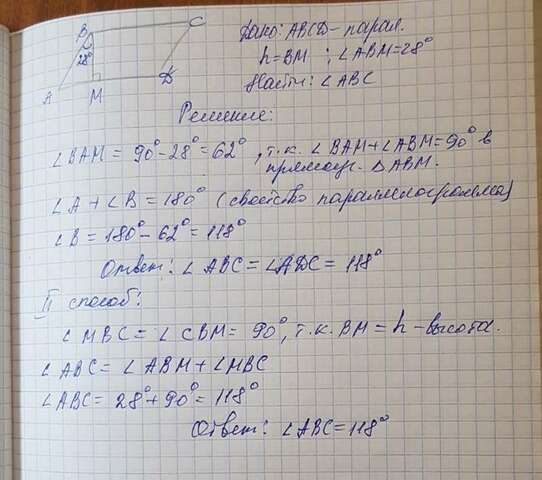 B C
28°
A M D
Дано: ABCD - парал.
h = BM ; ∠ABM = 28°
Найти: ∠ABC
Решение:
∠BAM = 90° - 28° = 62°, т.к. ∠BAM + ∠ABM = 90° в
прямоуг. △ABM.
∠A + ∠B = 180° (свойство параллелограмма)
∠B = 180° - 62° = 118°
Ответ: ∠ABC = ∠ADC = 118°
II способ:
∠MBC = ∠CBM = 90°, т.к. BM = h - высота.
∠ABC = ∠ABM + ∠MBC
∠ABC = 28° + 90° = 118°
Ответ: ∠ABC = 118°